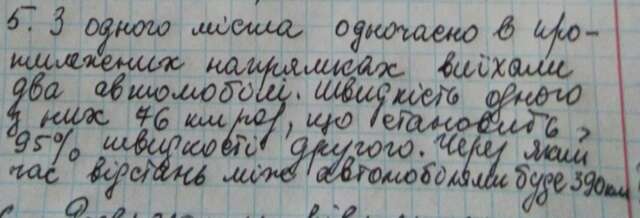 5. З одного міста одночасно в про-
тилежних напрямках виїхали
два автомобілі. Швидкість одного
з них 76 км/год, що становить
95% швидкості другого. Через який
час відстань між автомобілями буде 390км